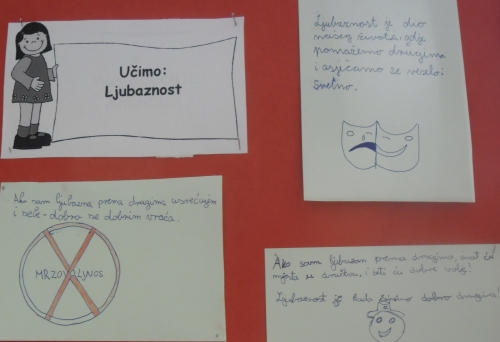 Učimo:
Ljubaznost
Ljubaznost je dio
našeg života, gdje
pomažemo drugima
i osjećamo se veselo i
sretno.
Ako sam ljubazna prema drugima usrećujem
i sebe - dobro se dobrim vraća.
MRZOVOLJNOS
Ako sam ljubazan prema drugima, svat će
mjesta u i biti će dobre volje!
Ljubaznost je kada činimo dobro drugima!